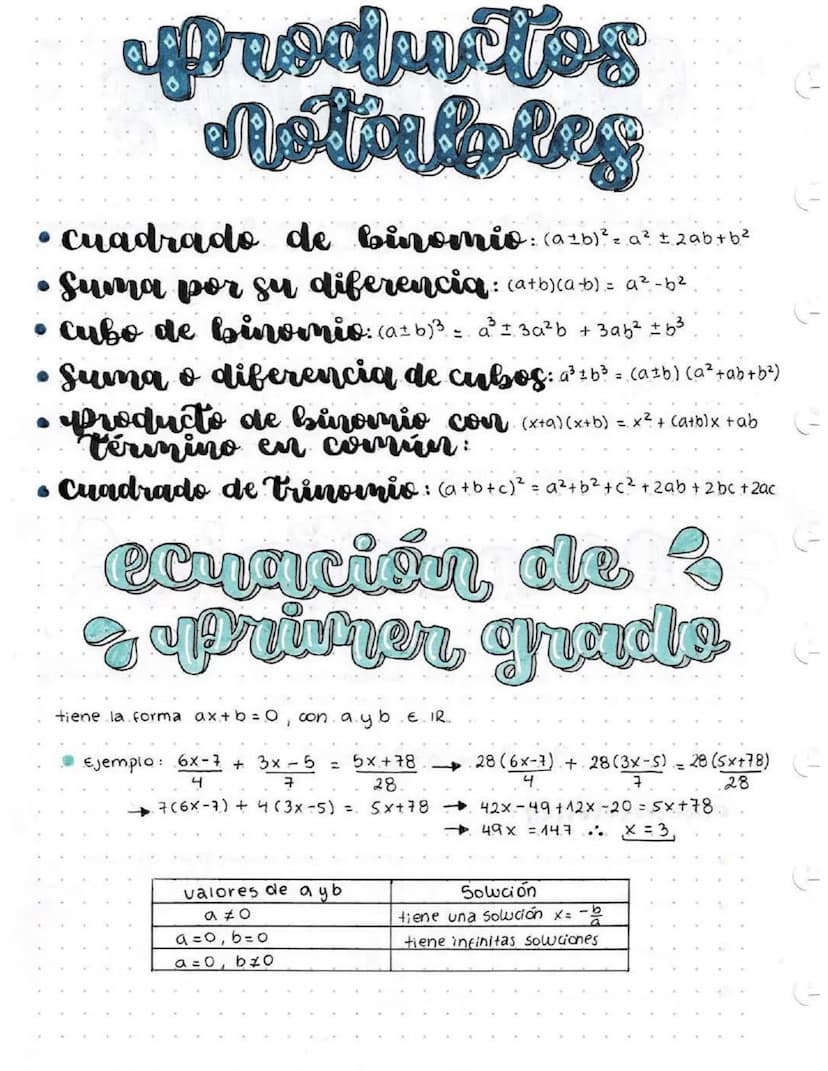 productos
notables
• cuadrado de binomio: (a±b)² = a² ± 2ab + b²
• Suma por su diferencia: (a+b)(a-b) = a² - b²
• cubo de binomio: (a±b)³ = a³ ± 3a²b + 3ab² ± b³
• Suma o diferencia de cubos: a³±b³ = (a±b)(a²+ab+b²)
• producto de binomio con (x+a)(x+b) = x² + (a+b)x + ab
término en común:
• Cuadrado de Trinomio: (a+b+c)² = a²+b²+c²+2ab+2bc+2ac
ecuación de
primer grado
tiene la forma ax+b=0, con a y b ∈ IR.
• Ejemplo: (6x-7)/4 + (3x-5)/7 = (5x+78)/28 → 28(6x-7)/4 + 28(3x-5)/7 = 28(5x+78)/28
→ 7(6x-7) + 4(3x-5) = 5x+78 → 42x-49+12x-20=5x+78
→ 49x = 147 ∴ x=3
valores de a y b | Solución
a ≠ 0 | tiene una solución x = -b/a
a=0, b=0 | tiene infinitas soluciones
a=0, b≠0